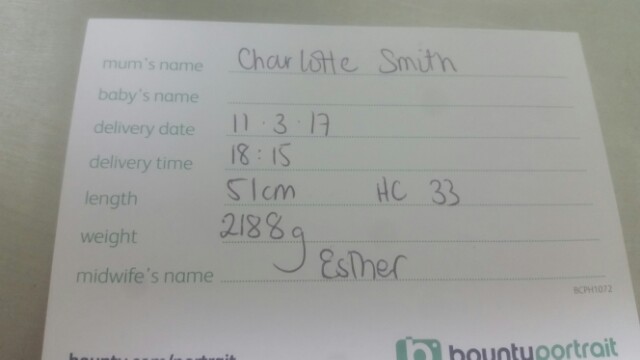 mum's name Charlotte Smith
baby's name
delivery date 11.3.17
delivery time 18:15
length 51cm HC 33
weight 2188g
midwife's name Esther
BCPH1012
bounty.com/portrait bountyportrait